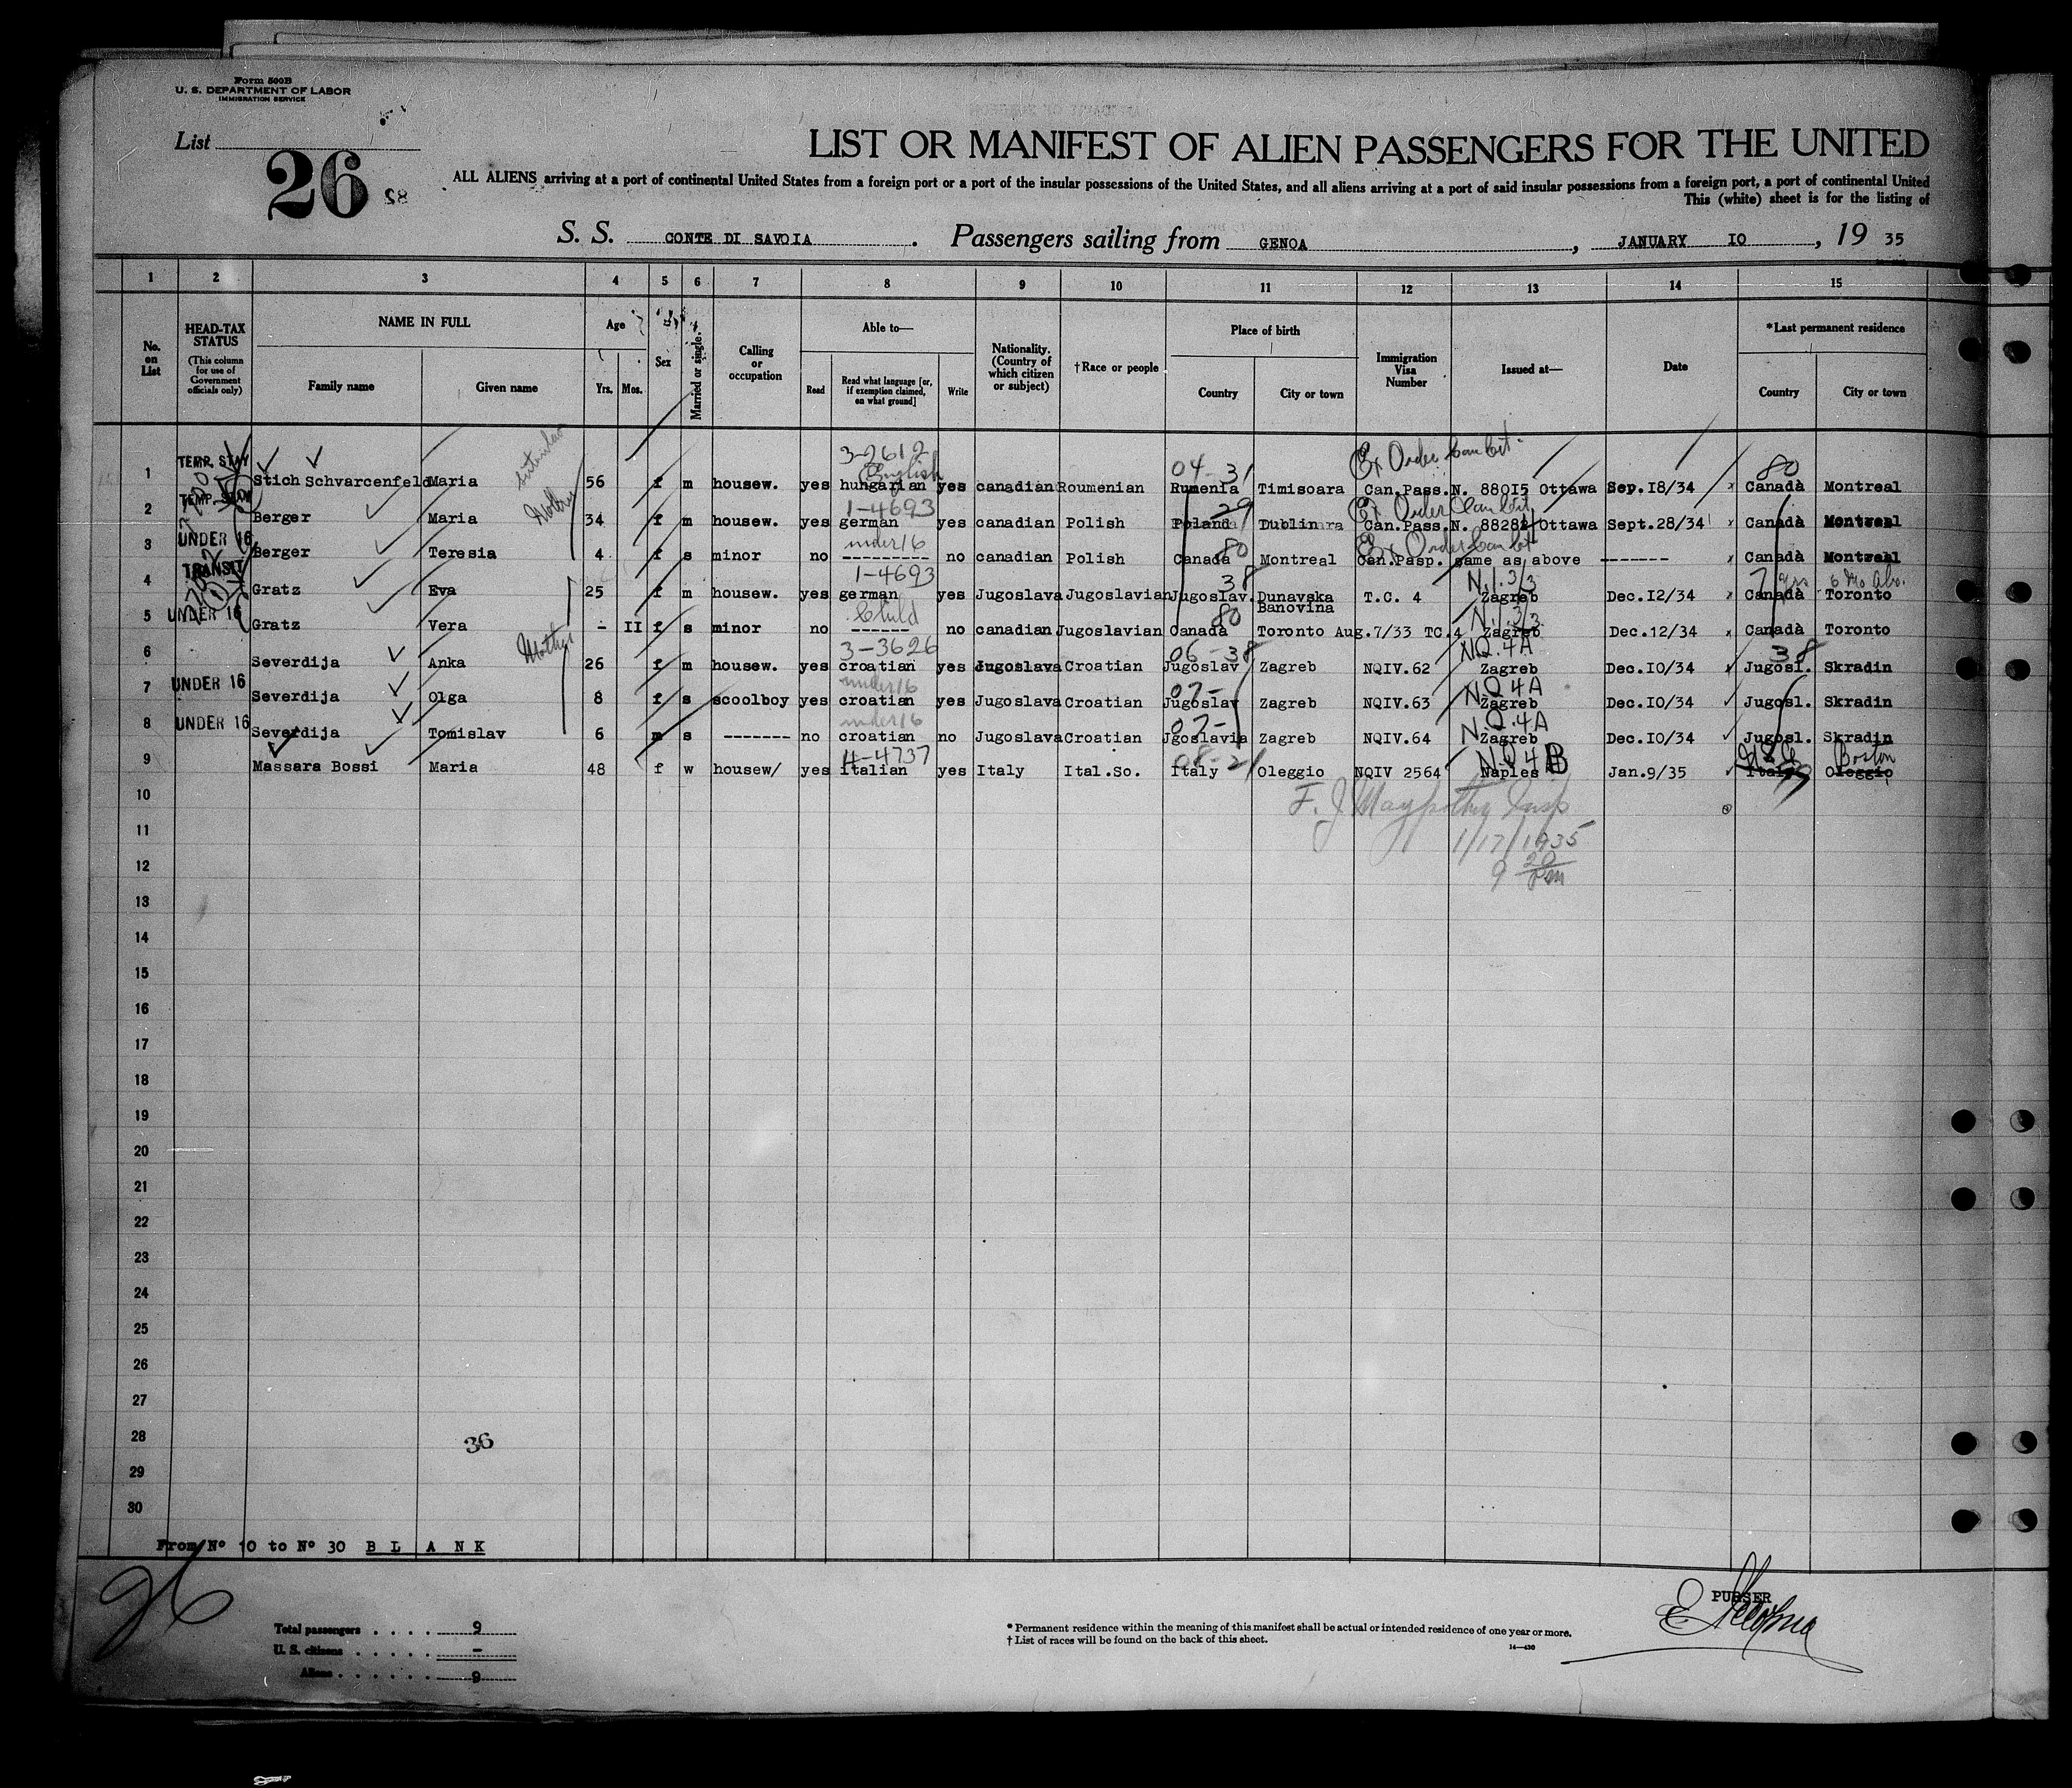 Form 500B
U. S. DEPARTMENT OF LABOR
IMMIGRATION SERVICE
List
26
LIST OR MANIFEST OF ALIEN PASSENGERS FOR THE UNITED
ALL ALIENS arriving at a port of continental United States from a foreign port or a port of the insular possessions of the United States, and all aliens arriving at a port of said insular possessions from a foreign port, a port of continental United
This (white) sheet is for the listing of
S. S. CONTE DI SAVOIA. Passengers sailing from GENOA, JANUARY 10, 19 35
1 2 3 4 5 6 7 8 9 10 11 12 13 14 15
No. on List
HEAD-TAX STATUS (This column for use of Government officials only)
NAME IN FULL
Family name Given name
Age Yrs. Mos.
Sex
Married or single.
Calling or occupation
Able to—
Read Read what language [or, if exemption claimed, on what ground] Write
Nationality. (Country of which citizen or subject)
†Race or people
Place of birth
Country City or town
Immigration Visa Number
Issued at—
Date
*Last permanent residence
Country City or town
3-2612 04-31 80
1 TEMP. STAY Stich Schvarcenfeld Maria 56 f m housew. yes hungarian English yes canadian Roumenian Rumenia Timisoara Can.Pass.N. 88015 Ottawa Sep.18/34 Canada Montreal
1-4693 29
2 TEMP. STAY Berger Maria 34 f m housew. yes german yes canadian Polish Poland Dublin Can.Pass.N. 88282 Ottawa Sept.28/34 Canada Montreal
under 16 80
3 UNDER 16 Berger Teresia 4 f s minor no --------- no canadian Polish Canada Montreal Can.Pasp. same as above ------- Canada Montreal
1-4693 38 N.I.3/3
4 TRANSIT Gratz Eva 25 f m housew. yes german yes Jugoslava Jugoslavian Jugoslav. Dunavska Banovina T.C. 4 Zagreb Dec.12/34 Canada Toronto
Child 80 N.I.3/3
5 UNDER 16 Gratz Vera - II f s minor no ------ no canadian Jugoslavian Canada Toronto Aug.7/33 TC.4 Zagreb Dec.12/34 Canada Toronto
Mother 3-3626 06-38 NQ.4A 38
6 Severdija Anka 26 f m housew. yes croatian yes Jugoslava Croatian Jugoslav Zagreb NQIV.62 Zagreb Dec.10/34 Jugosl. Skradin
under 16 07- N.Q 4A
7 UNDER 16 Severdija Olga 8 f s scoolboy yes croatian yes Jugoslava Croatian Jugoslav Zagreb NQIV.63 Zagreb Dec.10/34 Jugosl. Skradin
under 16 07- N.Q.4A
8 UNDER 16 Severdija Tomislav 6 m s ------- no croatian no Jugoslava Croatian Jgoslavia Zagreb NQIV.64 Zagreb Dec.10/34 Jugosl. Skradin
4-4737 08-21 N.Q 4B Boston
9 Massara Bossi Maria 48 f w housew/ yes italian yes Italy Ital.So. Italy Oleggio NQIV 2564 Naples Jan.9/35 Italy Oleggio
10
11 1/17/1935
12 9 20 pm
13
14
15
16
17
18
19
20
21
22
23
24
25
26
27
28 36
29
30
From Nº 10 to Nº 30 B L A N K
26
Total passengers . . . . 9
U. S. citizens . . . . . -
Aliens . . . . . . 9
* Permanent residence within the meaning of this manifest shall be actual or intended residence of one year or more.
† List of races will be found on the back of this sheet.
14—430
PURSER